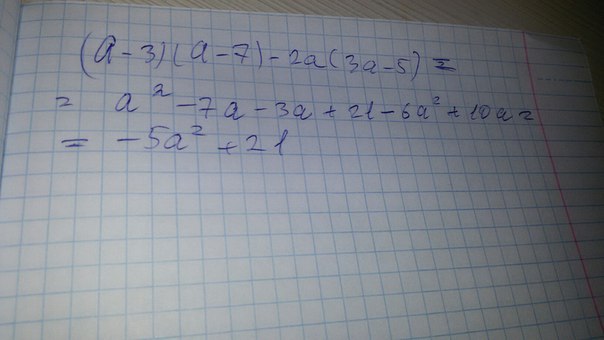 (a-3)(a-7)-2a(3a-5)=
= a²-7a-3a+21-6a²+10a=
= -5a²+21